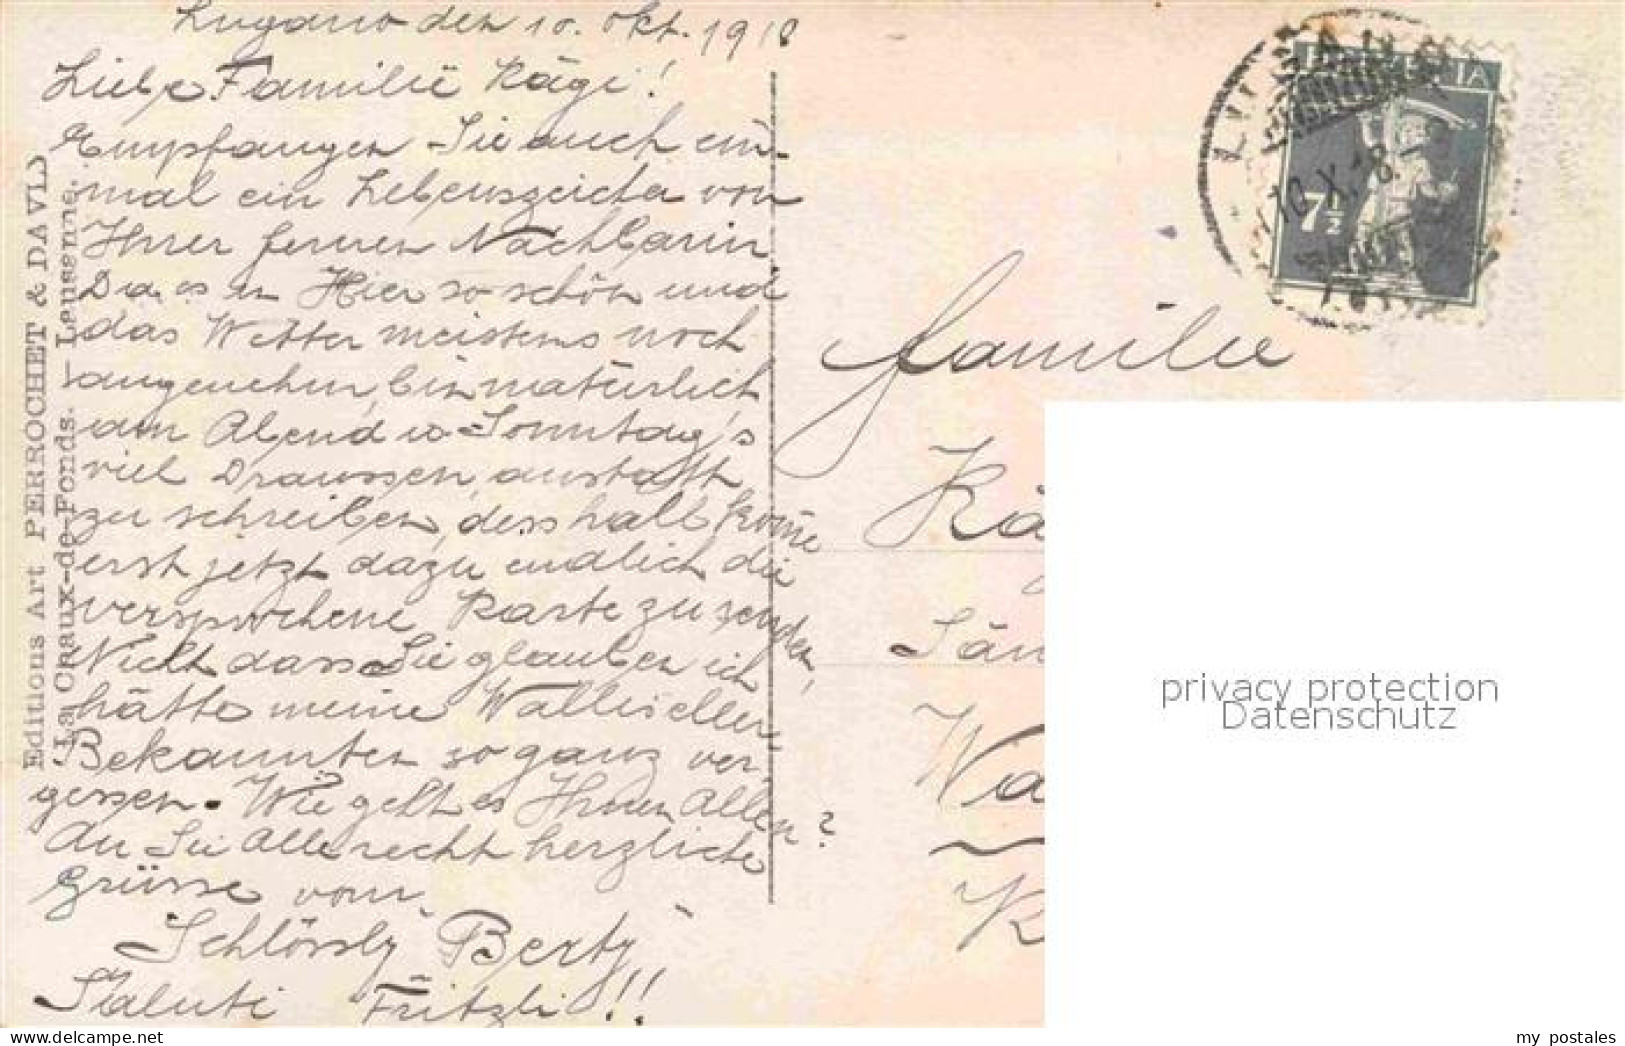 Lugano den 10. Okt. 1918
Liebe Familië Kägi!
Empfangen Sie auch ein-
mal ein Lebenszeichen von
Ihrer fernen Nachbarin
Da es in Hier so schön und
das Wetter meistens noch
angenehm, bin natürlich
am Abend u. Sonntag's
viel Draussen, anstatt
zu schreiben, dess halb komme
erst jetzt dazu endlich die
versprochene Karte zu senden,
Nicht dass Sie glauben ich
hätte meine Walliseller
Bekannten so ganz ver-
gessen. Wie geht es Ihnen Allen?
An Sie Alle recht herzliche
Grüsse vom
Schlössly Berty
Saluti Fritzli!!
Editions Art PERROCHET & DAVID
La Chaux-de-Fonds. — Lausanne.
HELVETIA
7½
LUGANO
10.X.18.
Familie
Kä
Sän
Wa
K
privacy protection
Datenschutz
my postales